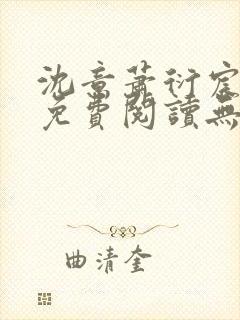 沈章蕭衍宸
免費閱讀無
曲清奎